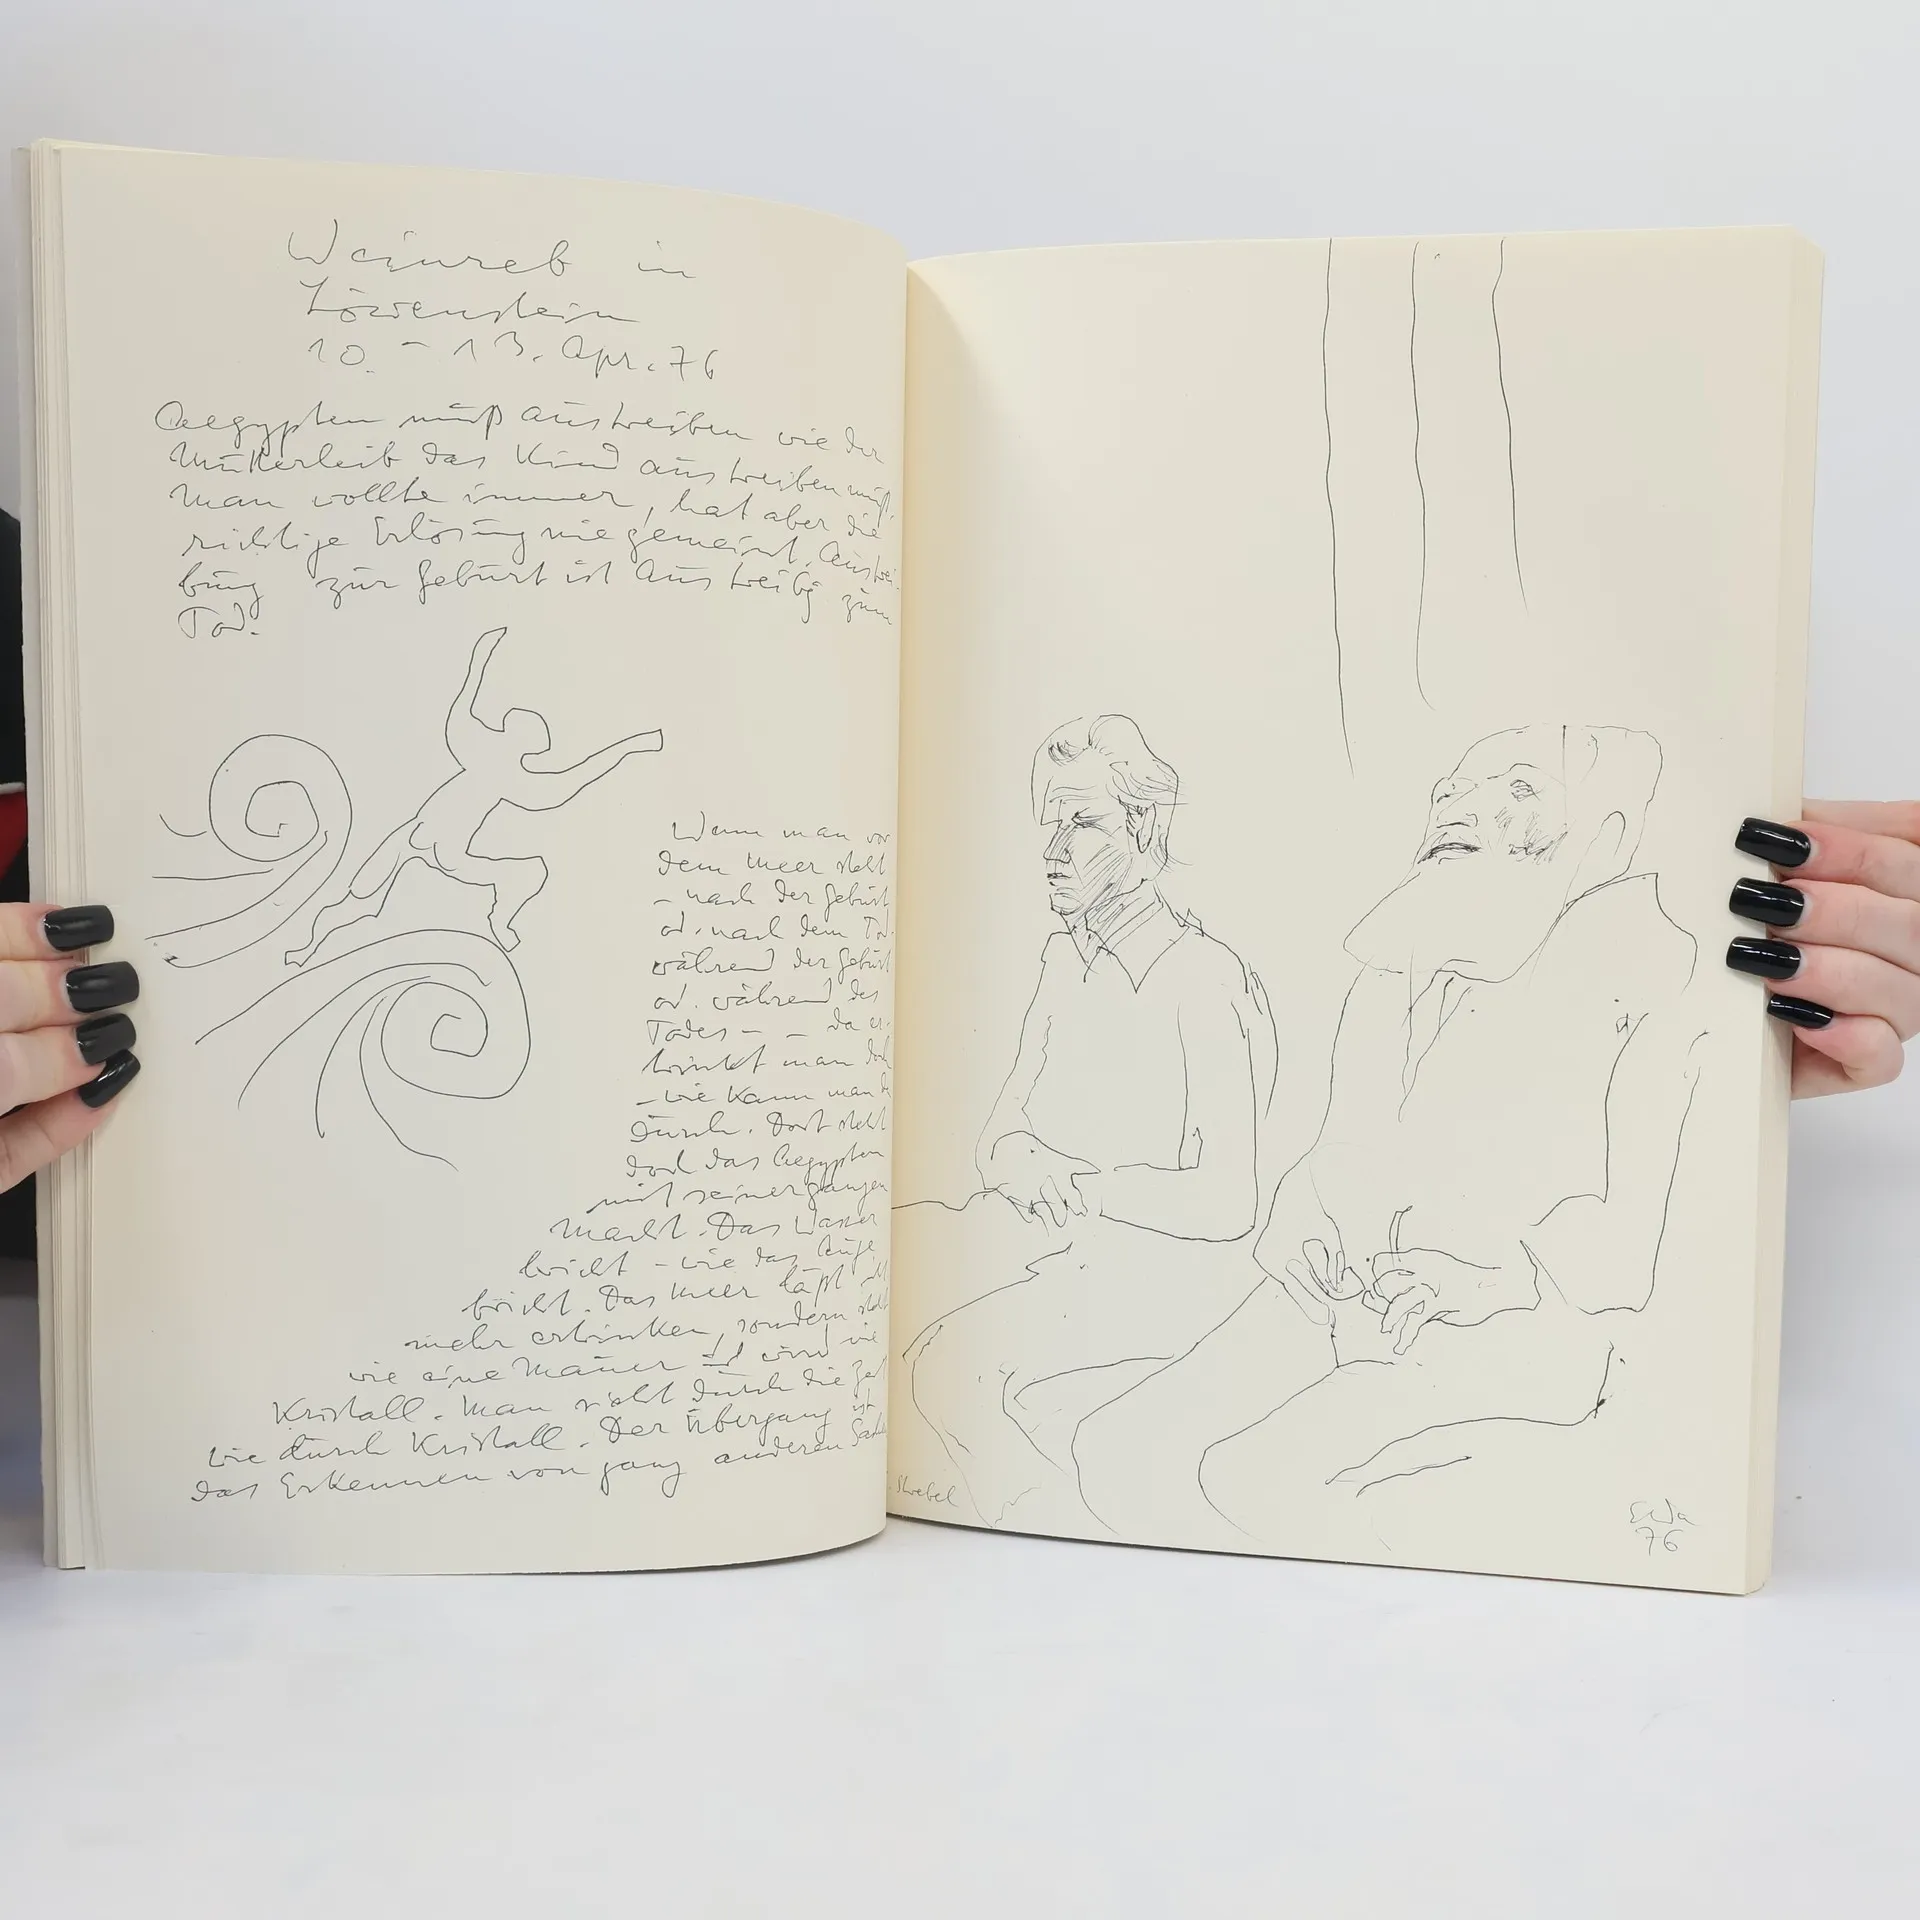 Weinreb in
Löwenstein
10. - 13. Apr. 76
Aegypten muß austreiben wie der
Mutterleib das Kind austreiben muß.
Man wollte immer, hat aber die
richtige Erlösung nie gemeint. Austrei-
bung zur Geburt ist Austreibg zum
Tod.
Wenn man vor
dem Meer steht
- nach der Geburt
od. nach dem Tod.
während der Geburt
od. während des
Todes - - da er-
trinkt man doch
- wie kann man da
durch. Dort steht
doch das Aegypten
mit seiner ganzen
Macht. Das Wasser
bricht - wie das Auge
bricht. Das Meer läßt nicht
mehr ertrinken, sondern steht
wie eine Mauer und wird wie
Kristall. Man sieht durch die Zeit
wie durch Kristall. Der Übergang ist
das Erkennen von ganz anderen
Strebel
76